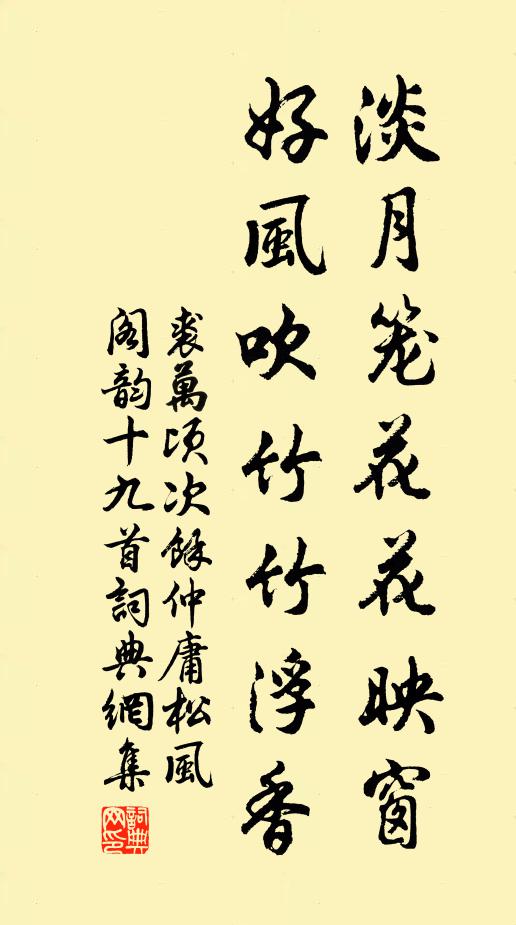 淡月笼花花映窗
好風吹竹竹浮香
裘萬頃次餘仲庸松風
阁韵十九首詞典網集
詞典網印